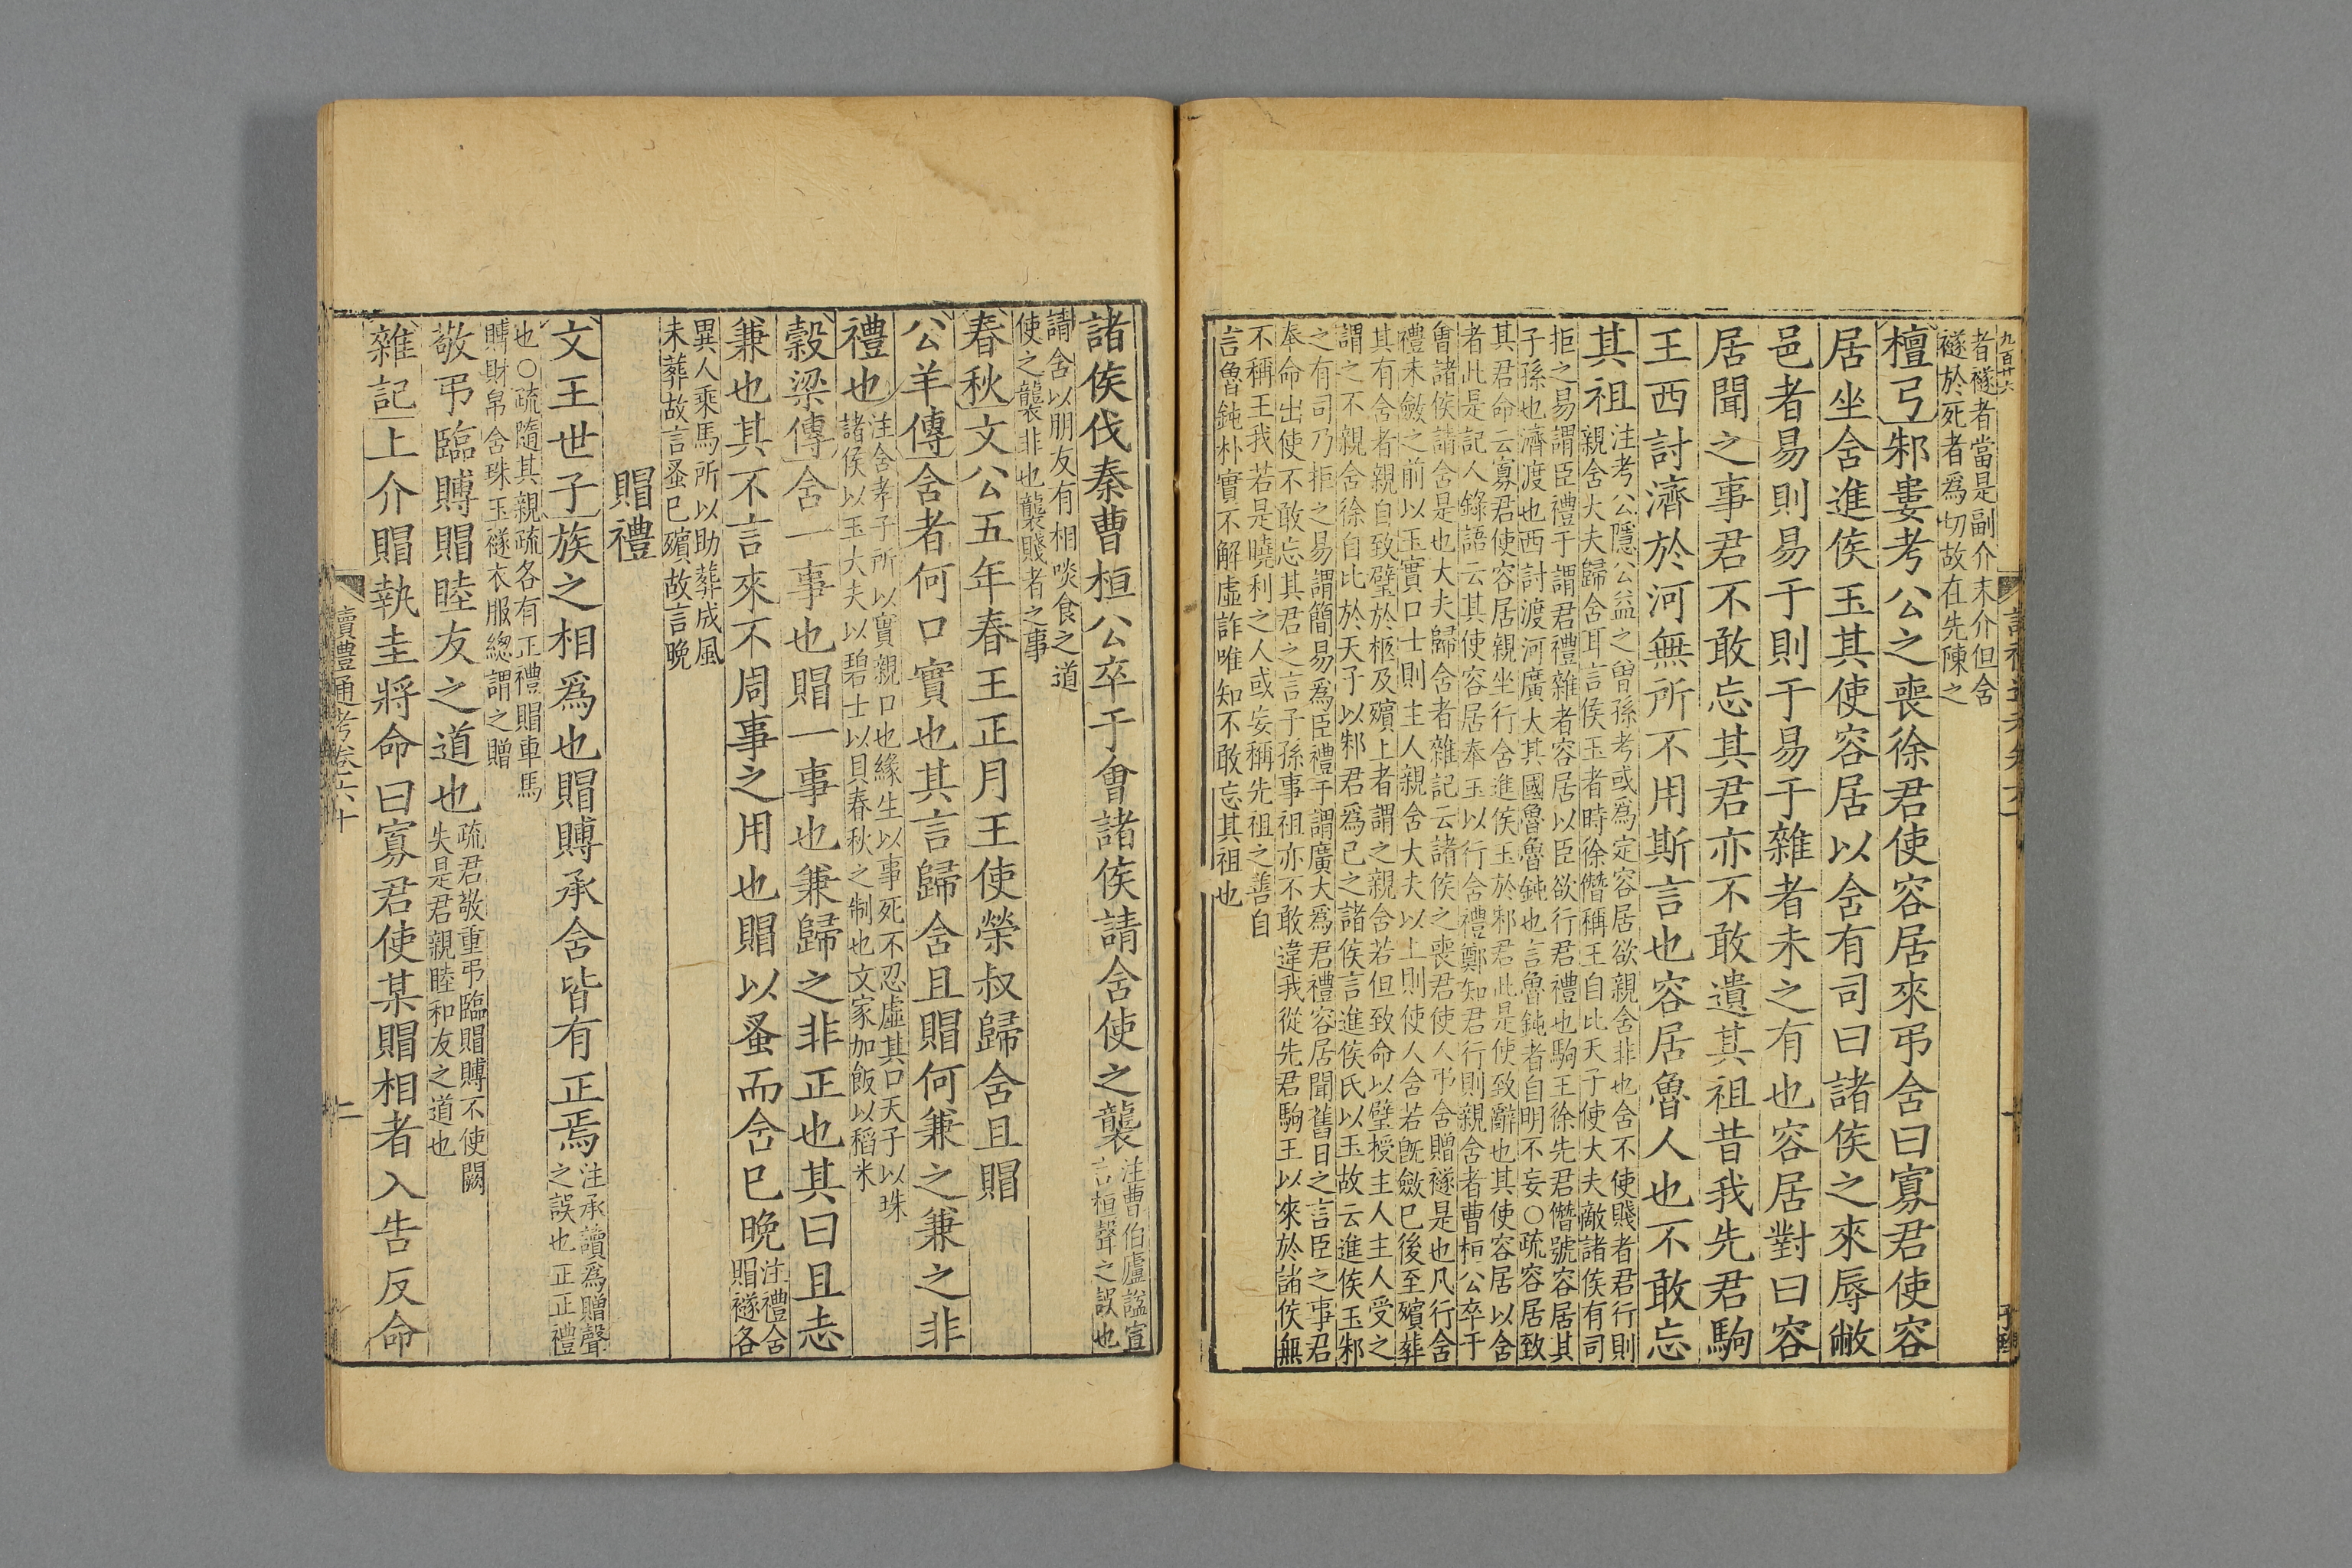 九百廿六
者襚者當是副介末介但含
襚於死者爲切故在先陳之
檀弓邾婁考公之喪徐君使容居來弔含曰寡君使容
居坐含進侯玉其使容居以含有司曰諸侯之來辱敝
邑者易則易于則于易于雜者未之有也容居對曰容
居聞之事君不敢忘其君亦不敢遺其祖昔我先君駒
王西討濟於河無所不用斯言也容居魯人也不敢忘
其祖
注考公隱公益之曾孫考或爲定容居欲親含非也含不使賤者君行則
親含大夫歸含耳言侯玉者時徐僭稱王自比天子使大夫敵諸侯有司
拒之易謂臣禮于謂君禮雜者容居以臣欲行君禮也駒王徐先君僭號容居其
子孫也濟渡也西討渡河廣大其國魯魯鈍也言魯鈍者自明不妄○疏容居致
其君命云寡君使容居親坐行含進侯玉於邾君此是使致辭也其使容居以含
者此是記人錄語云其使容居奉玉以行含禮鄭知君行則親含者曹桓公卒于
會諸侯請含是也大夫歸含者雜記云諸侯之喪君使人弔含贈襚是也凡行含
禮未斂之前以玉實口士則主人親含大夫以上則使人含若旣斂已後至殯葬
其有含者親自致璧於柩及殯上者謂之親含若但致命以璧授主人主人受之
謂之不親含徐自比於天子以邾君爲己之諸侯言進侯氏以玉故云進侯玉邾
之有司乃拒之易謂簡易爲臣禮于謂廣大爲君禮容居聞舊日之言臣之事君
奉命出使不敢忘其君之言子孫事祖亦不敢違我從先君駒王以來於諸侯無
不稱王我若是曉利之人或妄稱先祖之善自
言魯鈍朴實不解虛詐唯知不敢忘其祖也
諸侯伐秦曹桓公卒于會諸侯請含使之襲
注曹伯廬諡宣
言桓聲之誤也
請含以朋友有相啖食之道
使之襲非也襲賤者之事
春秋文公五年春王正月王使榮叔歸含且賵
公羊傳含者何口實也其言歸含且賵何兼之兼之非
禮也
注含孝子所以實親口也緣生以事死不忍虛其口天子以珠
諸侯以玉大夫以碧士以貝春秋之制也文家加飯以稻米
穀梁傳含一事也賵一事也兼歸之非正也其曰且志
兼也其不言來不周事之用也賵以蚤而含已晚
注禮含
賵襚各
異人乘馬所以助葬成風
未葬故言蚤已殯故言晚
賵禮
文王世子族之相爲也賵賻承含皆有正焉
注承讀爲贈聲
之誤也正正禮
也○疏隨其親疏各有正禮賵車馬
賻財帛含珠玉襚衣服總謂之贈
敬弔臨賻賵睦友之道也
疏君敬重弔臨賵賻不使闕
失是君親睦和友之道也
雜記上介賵執圭將命曰寡君使某賵相者入告反命
讀禮通考卷六十